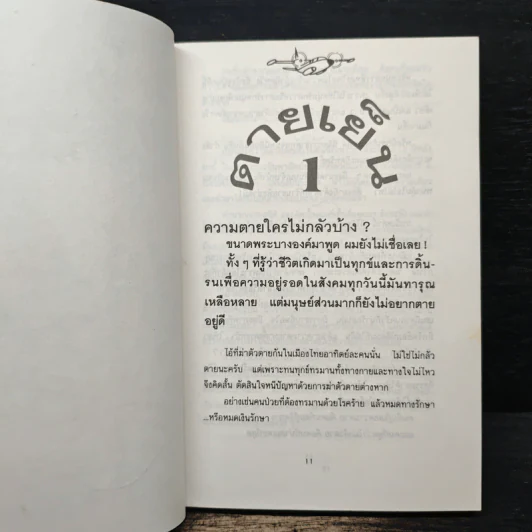 ตายเย็น
1
ความตายใครไม่กลัวบ้าง ?
ขนาดพระบางองค์มาพูด ผมยังไม่เชื่อเลย !
ทั้ง ๆ ที่รู้ว่าชีวิตเกิดมาเป็นทุกข์และการดิ้น-
รนเพื่อความอยู่รอดในสังคมทุกวันนี้มันทารุณ
เหลือหลาย แต่มนุษย์ส่วนมากก็ยังไม่อยากตาย
อยู่ดี
ไอ้ที่ฆ่าตัวตายกันในเมืองไทยอาทิตย์ละคนนั่น ไม่ใช่ไม่กลัว
ตายนะครับ แต่เพราะทนทุกข์ทรมานทั้งทางกายและทางใจไม่ไหว
จึงคิดสั้น ตัดสินใจหนีปัญหาด้วยการฆ่าตัวตายต่างหาก
อย่างเช่นคนป่วยที่ต้องทรมานด้วยโรคร้าย แล้วหมดทางรักษา
...หรือหมดเงินรักษา
11